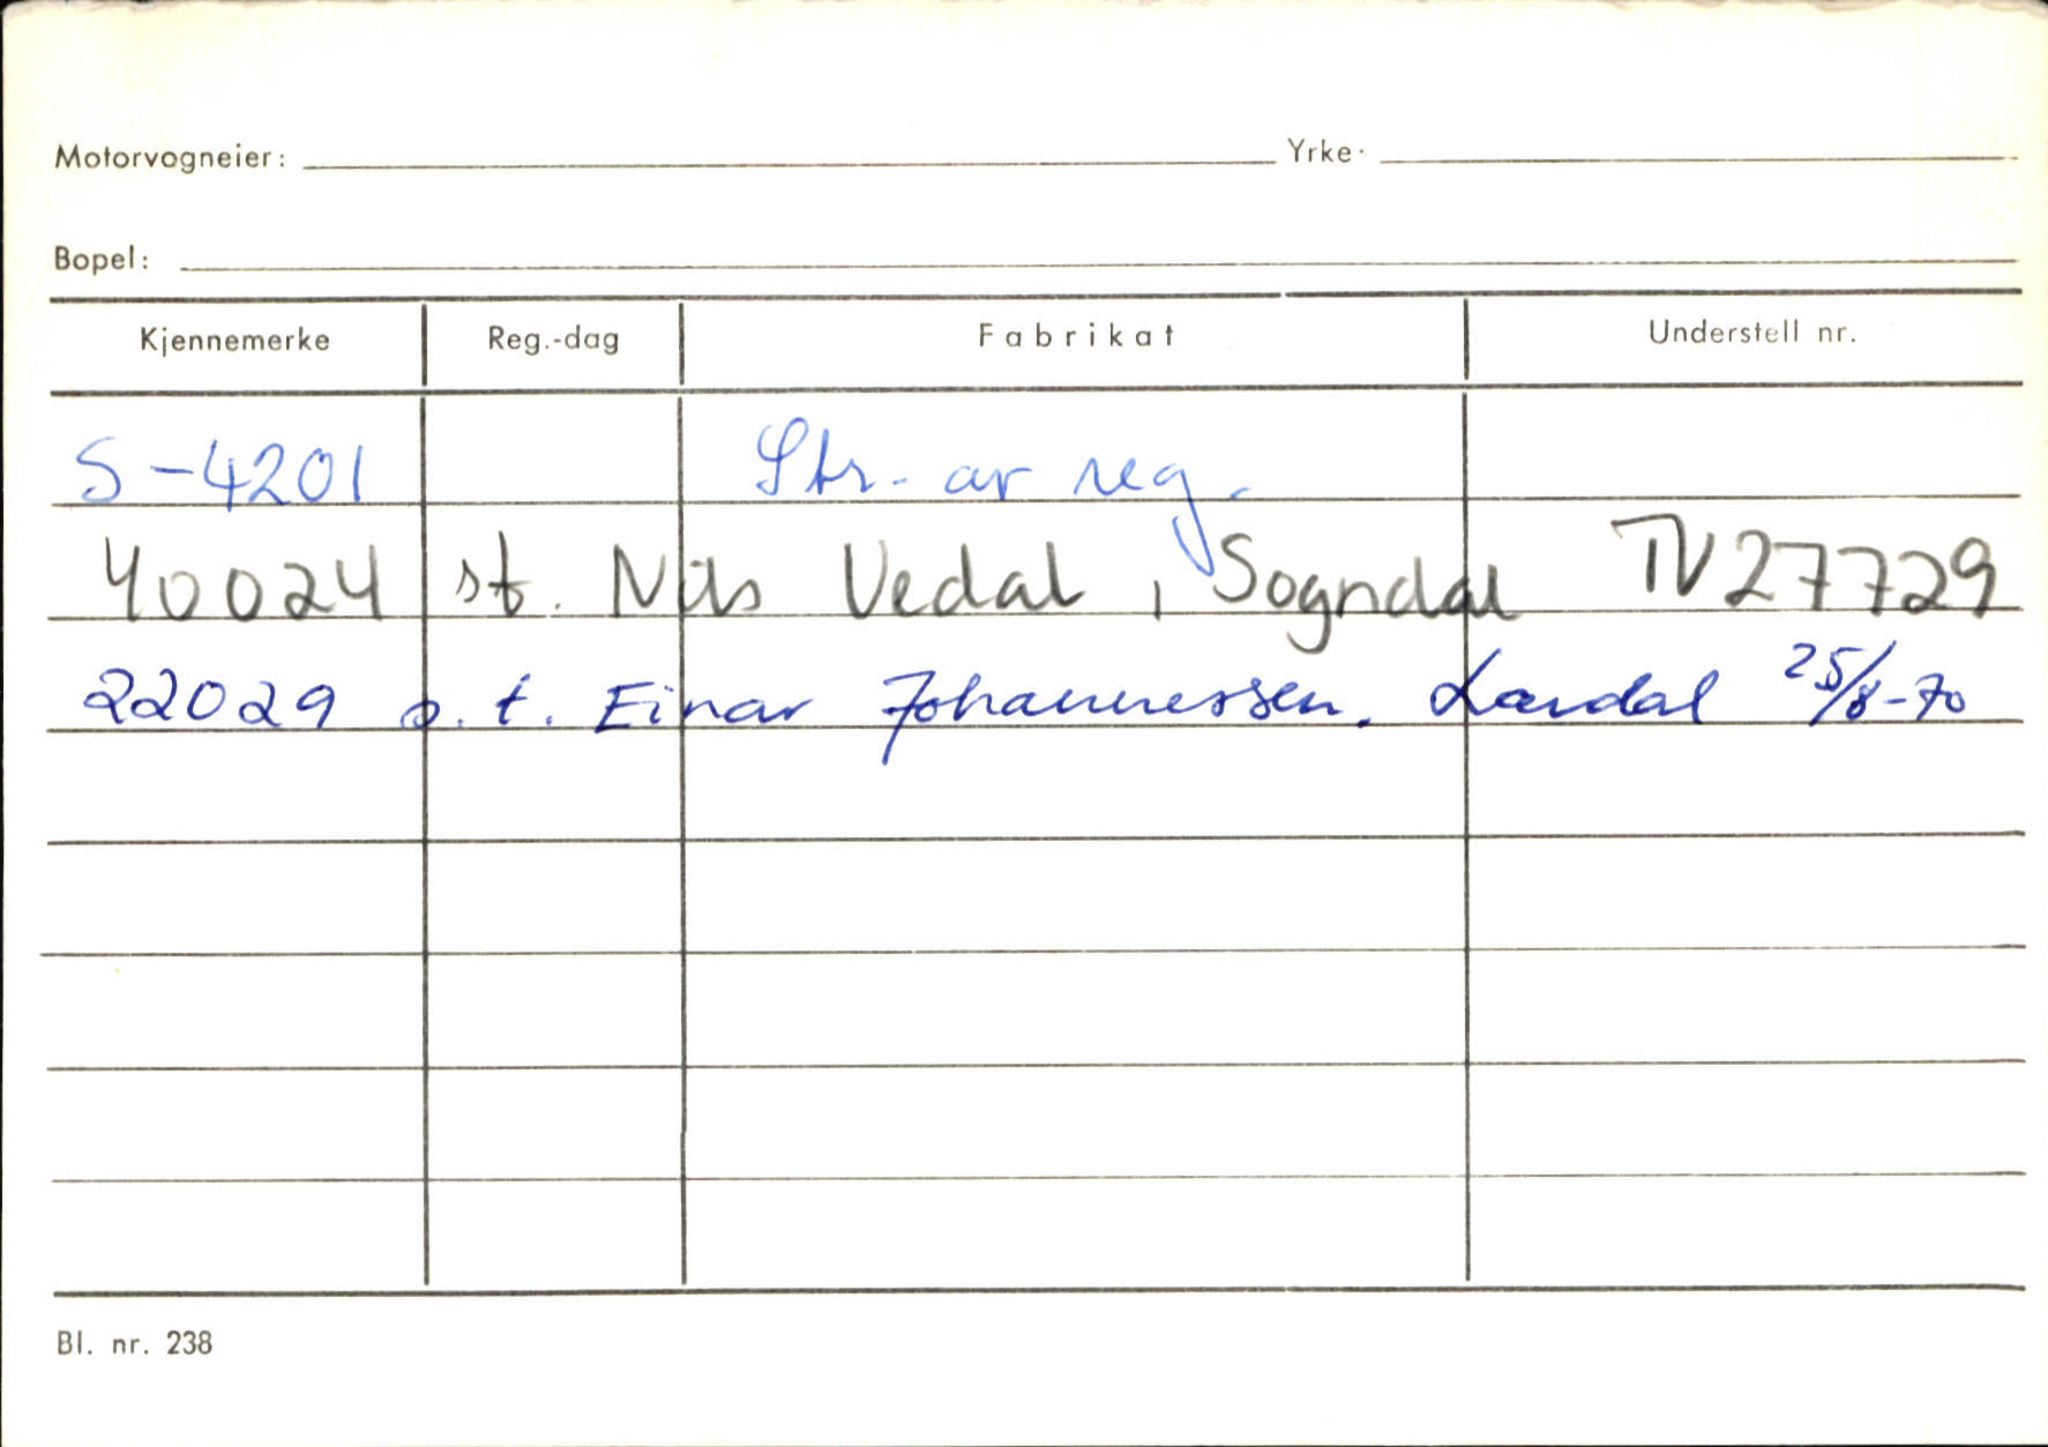 Motorvogneier: Yrke.
Bopel:
Kjennemerke Reg.-dag Fabrikat Understell nr.
S-4201 Str. av reg.
40024 st. Nils Vedal, Sogndal TV27729
22029 s.t. Einar Johannessen. Lærdal 25/8-70
Bl. nr. 238